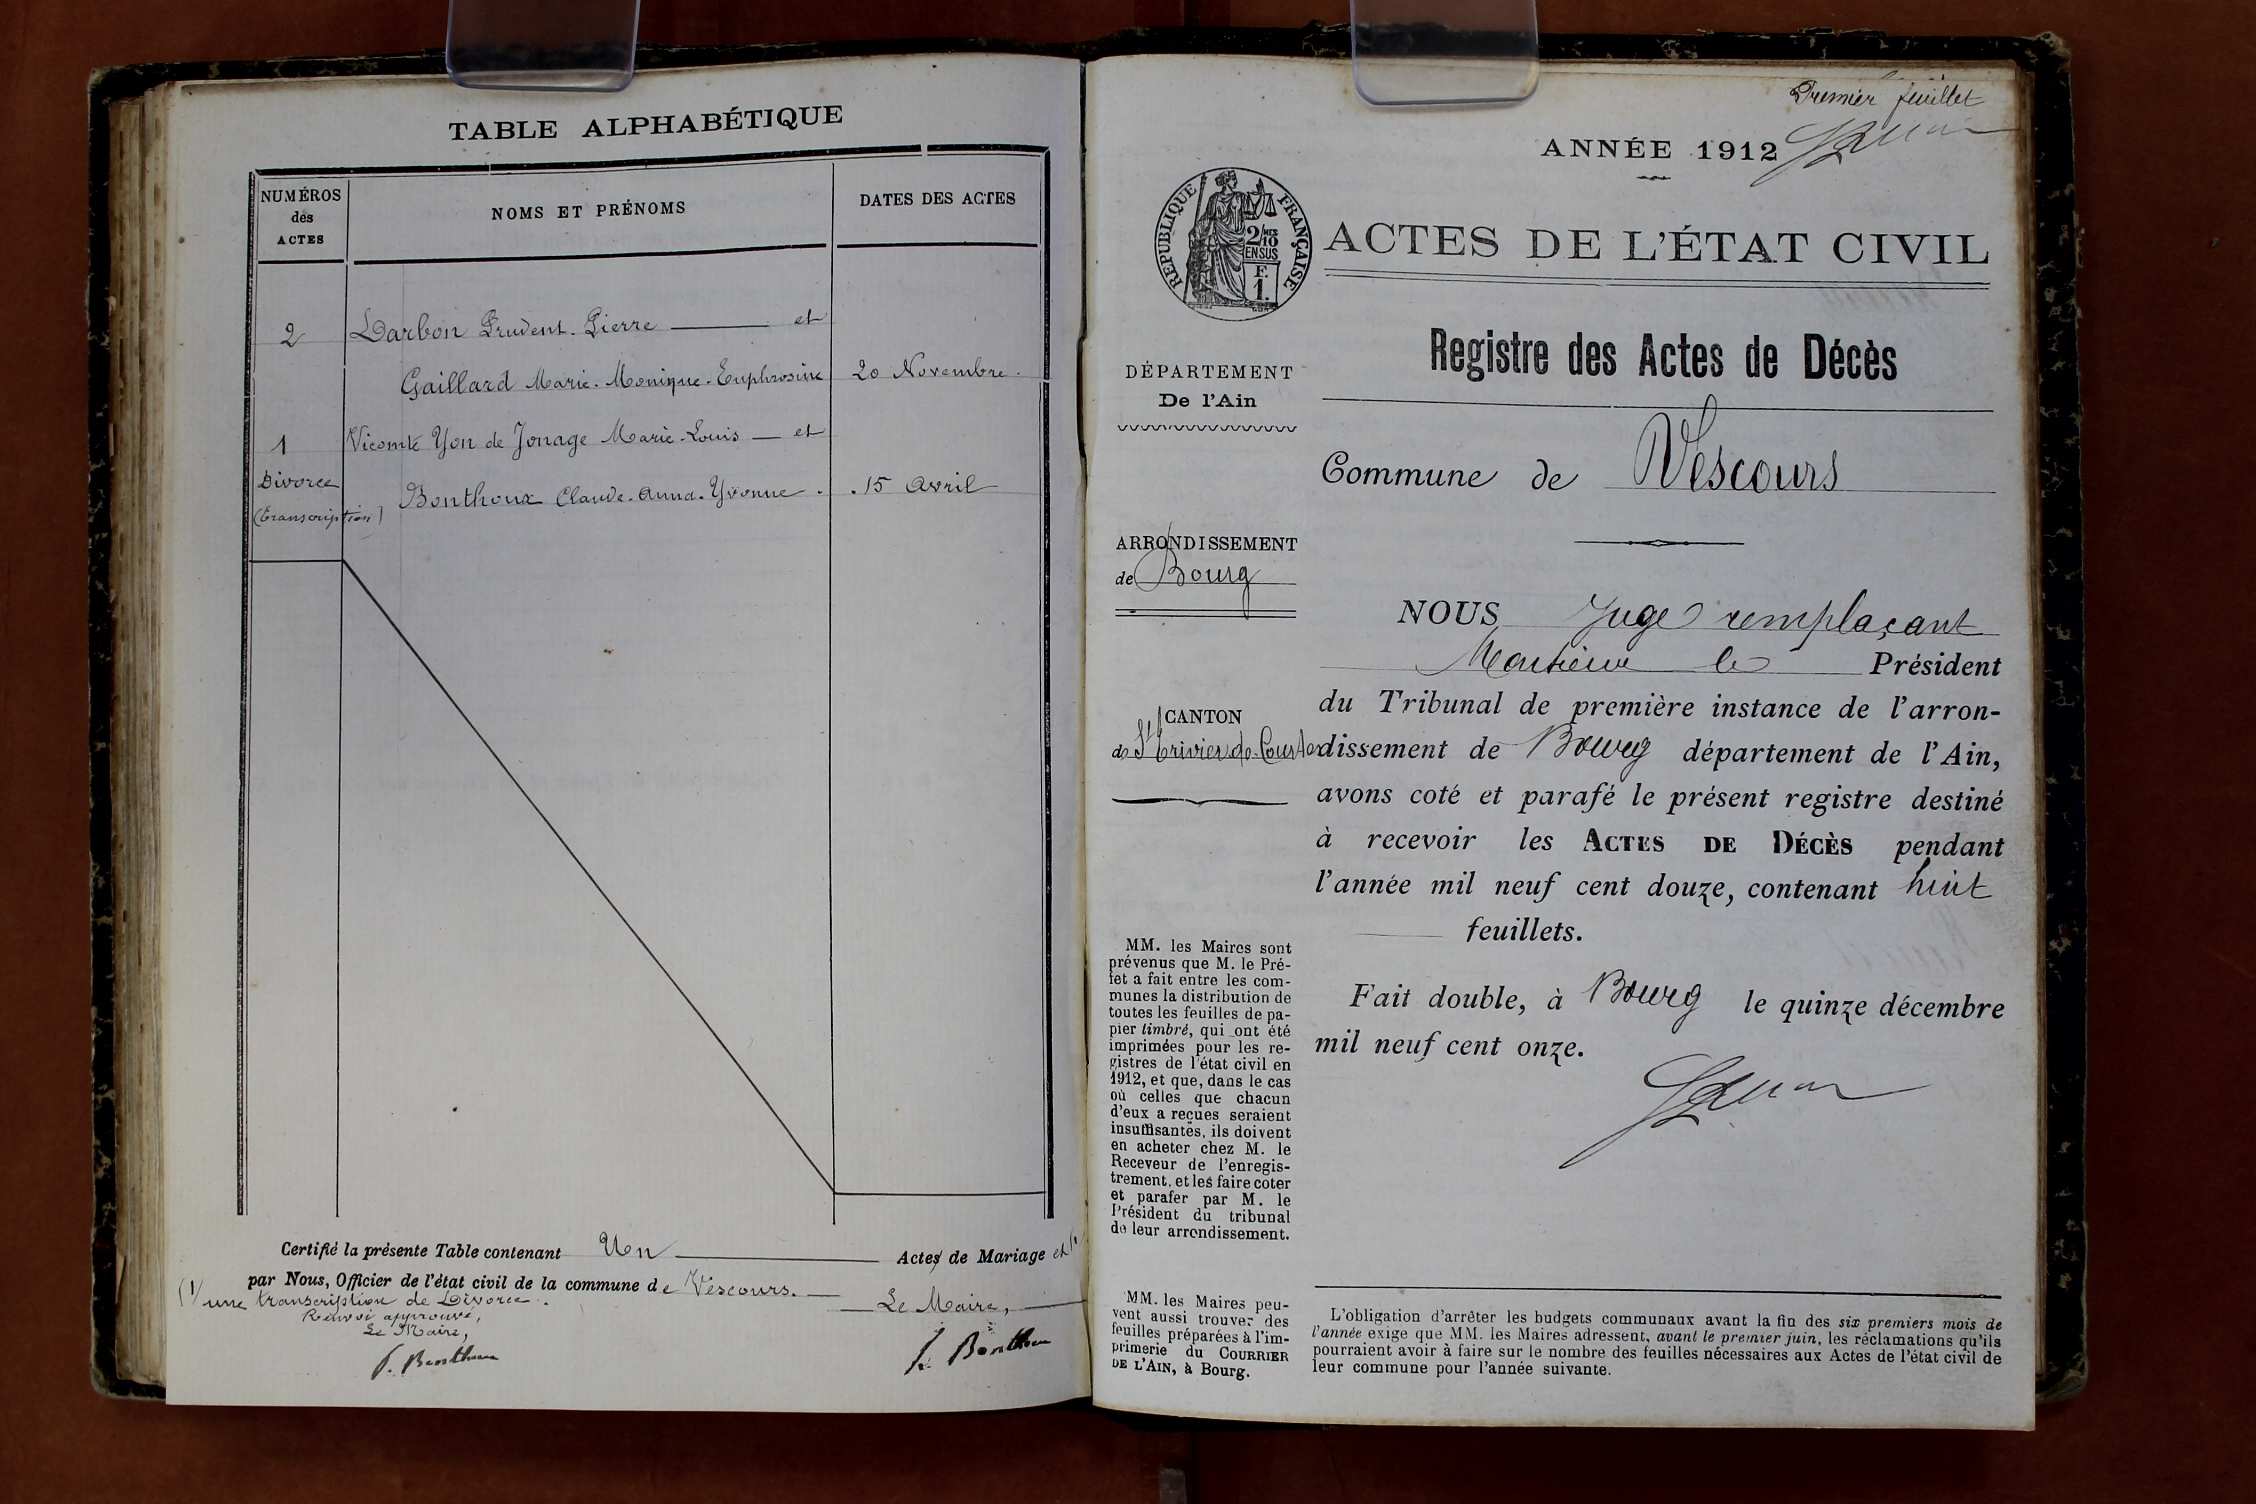 TABLE ALPHABÉTIQUE
NUMÉROS
des
ACTES
NOMS ET PRÉNOMS
DATES DES ACTES
2
Darbon Prudent-Pierre et
Gaillard Marie-Monique-Euphrosine 20 Novembre.
1
Divorce
(transcription)
Vicomte Yon de Jonage Marie-Louis et
Bonthoux Claude-Anna-Yvonne. 15 Avril
Certifié la présente Table contenant Un Actes de Mariage et (1)
par Nous, Officier de l'état civil de la commune de Vescours.
(1) une transcription de Divorce.
Renvoi approuvé,
Le Maire,
Le Maire,
Premier feuillet
ANNÉE 1912
RÉPUBLIQUE FRANÇAISE
2/10 MES
EN SUS
F.
1.
ACTES DE L'ÉTAT CIVIL
Registre des Actes de Décès
DÉPARTEMENT
De l'Ain
Commune de Vescours
ARRONDISSEMENT
de Bourg
CANTON
de St Trivier-de-Courtes
NOUS Juge remplaçant
Monsieur le Président
du Tribunal de première instance de l'arron-
dissement de Bourg département de l'Ain,
avons coté et parafé le présent registre destiné
à recevoir les ACTES DE DÉCÈS pendant
l'année mil neuf cent douze, contenant huit
feuillets.
Fait double, à Bourg le quinze décembre
mil neuf cent onze.
MM. les Maires sont
prévenus que M. le Pré-
fet a fait entre les com-
munes la distribution de
toutes les feuilles de pa-
pier timbré, qui ont été
imprimées pour les re-
gistres de l'état civil en
1912, et que, dans le cas
où celles que chacun
d'eux a reçues seraient
insuffisantes, ils doivent
en acheter chez M. le
Receveur de l'enregis-
trement, et les faire coter
et parafer par M. le
Président du tribunal
de leur arrondissement.
MM. les Maires peu-
vent aussi trouver des
feuilles préparées à l'im-
primerie du COURRIER
DE L'AIN, à Bourg.
L'obligation d'arrêter les budgets communaux avant la fin des six premiers mois de
l'année exige que MM. les Maires adressent, avant le premier juin, les réclamations qu'ils
pourraient avoir à faire sur le nombre des feuilles nécessaires aux Actes de l'état civil de
leur commune pour l'année suivante.